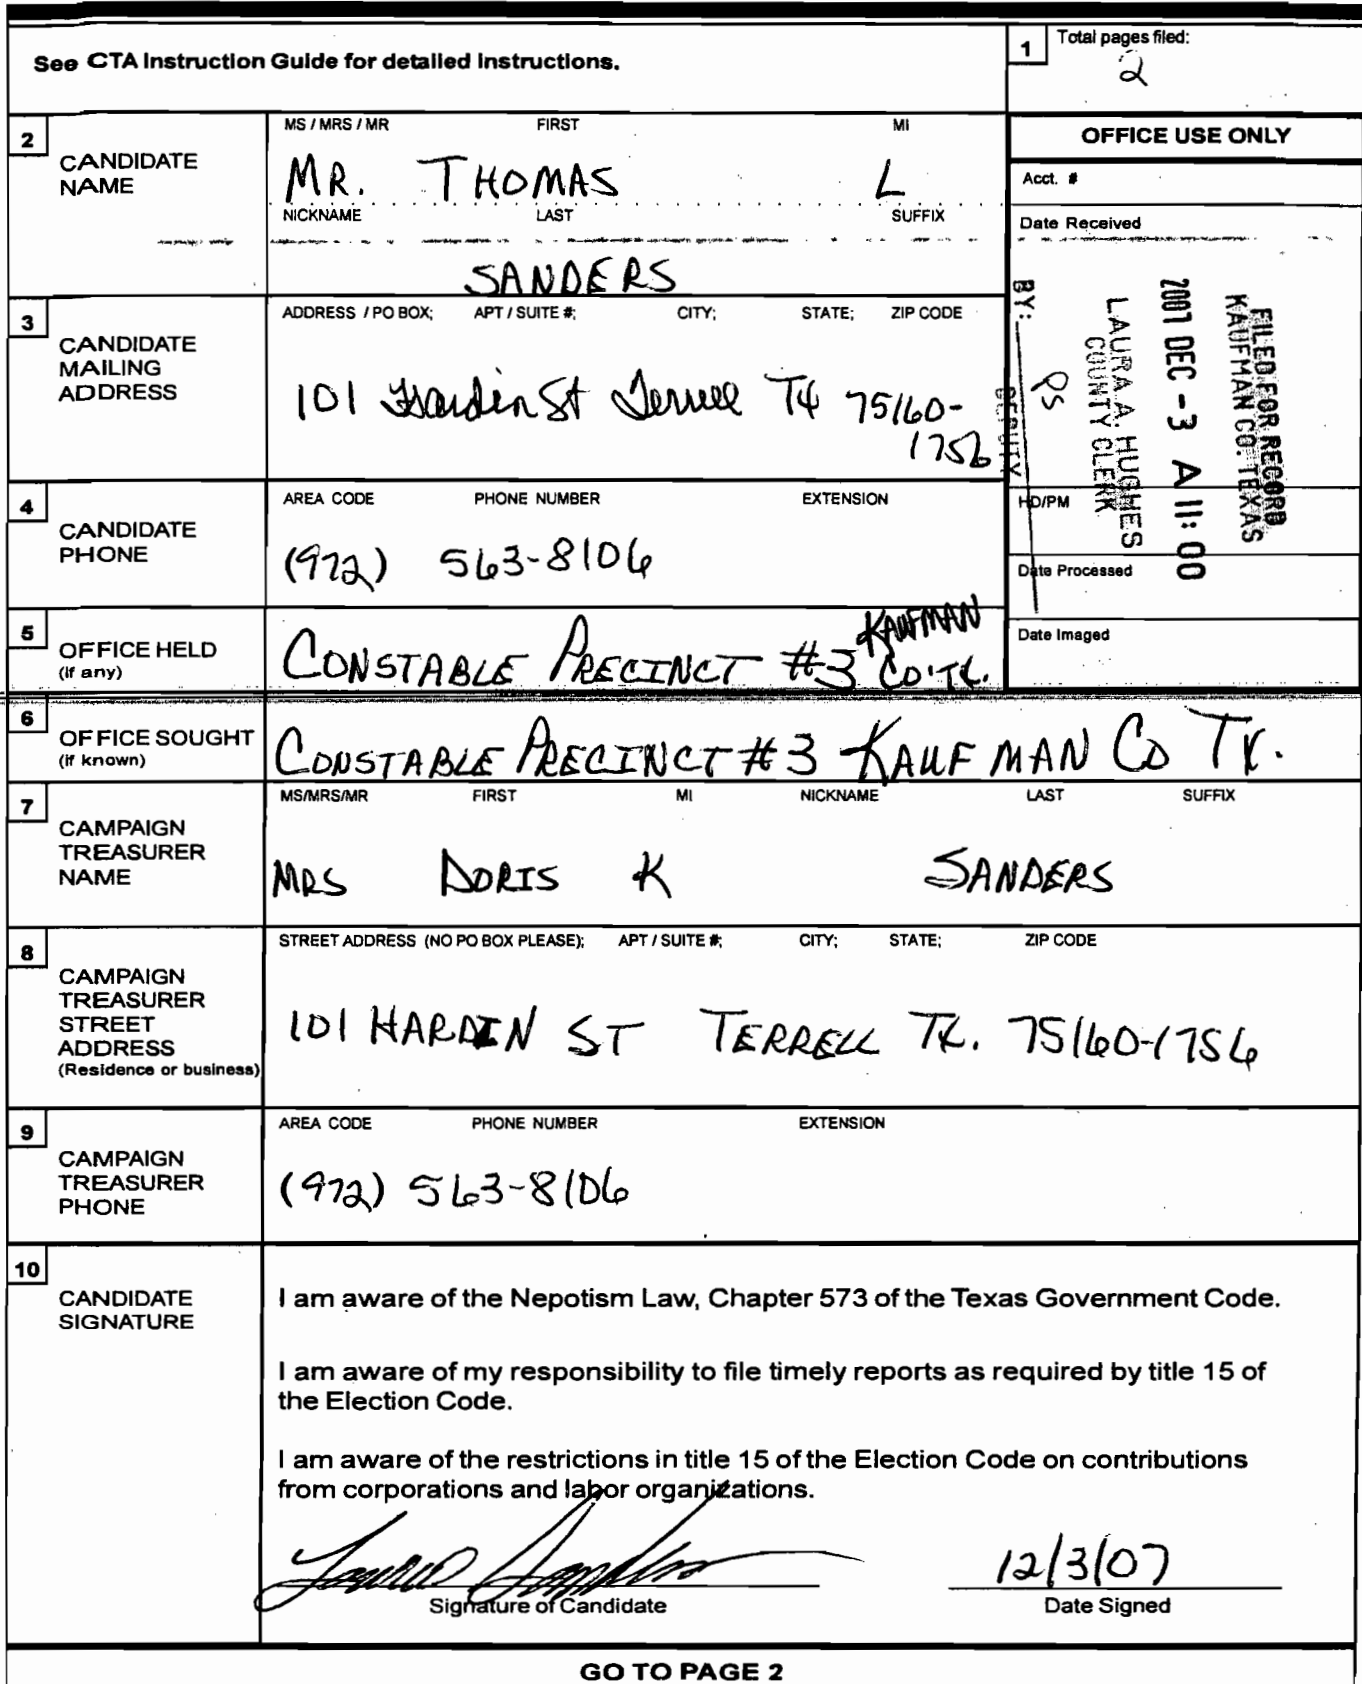 See CTA Instruction Guide for detailed instructions.
1 Total pages filed:
2
2 CANDIDATE NAME
MS / MRS / MR FIRST MI
MR. THOMAS L
NICKNAME LAST SUFFIX
SANDERS
OFFICE USE ONLY
Acct. #
Date Received
FILED FOR RECORD
KAUFMAN CO. TEXAS
2007 DEC -3 A 11: 00
LAURA A. HUGHES
COUNTY CLERK
BY: DEPUTY
HD/PM
Date Processed
Date Imaged
3 CANDIDATE MAILING ADDRESS
ADDRESS / PO BOX; APT / SUITE #; CITY; STATE; ZIP CODE
101 Hardin St Terrell TX 75160-
1756
4 CANDIDATE PHONE
AREA CODE PHONE NUMBER EXTENSION
(972) 563-8106
5 OFFICE HELD (if any)
CONSTABLE PRECINCT #3 KAUFMAN CO. TX.
6 OFFICE SOUGHT (if known)
CONSTABLE PRECINCT #3 KAUFMAN CO TX.
7 CAMPAIGN TREASURER NAME
MS/MRS/MR FIRST MI NICKNAME LAST SUFFIX
MRS DORIS K SANDERS
8 CAMPAIGN TREASURER STREET ADDRESS (Residence or business)
STREET ADDRESS (NO PO BOX PLEASE); APT / SUITE #; CITY; STATE; ZIP CODE
101 HARDIN ST TERRELL TX. 75160-1756
9 CAMPAIGN TREASURER PHONE
AREA CODE PHONE NUMBER EXTENSION
(972) 563-8106
10 CANDIDATE SIGNATURE
I am aware of the Nepotism Law, Chapter 573 of the Texas Government Code.
I am aware of my responsibility to file timely reports as required by title 15 of
the Election Code.
I am aware of the restrictions in title 15 of the Election Code on contributions
from corporations and labor organizations.
12/3/07
Signature of Candidate Date Signed
GO TO PAGE 2